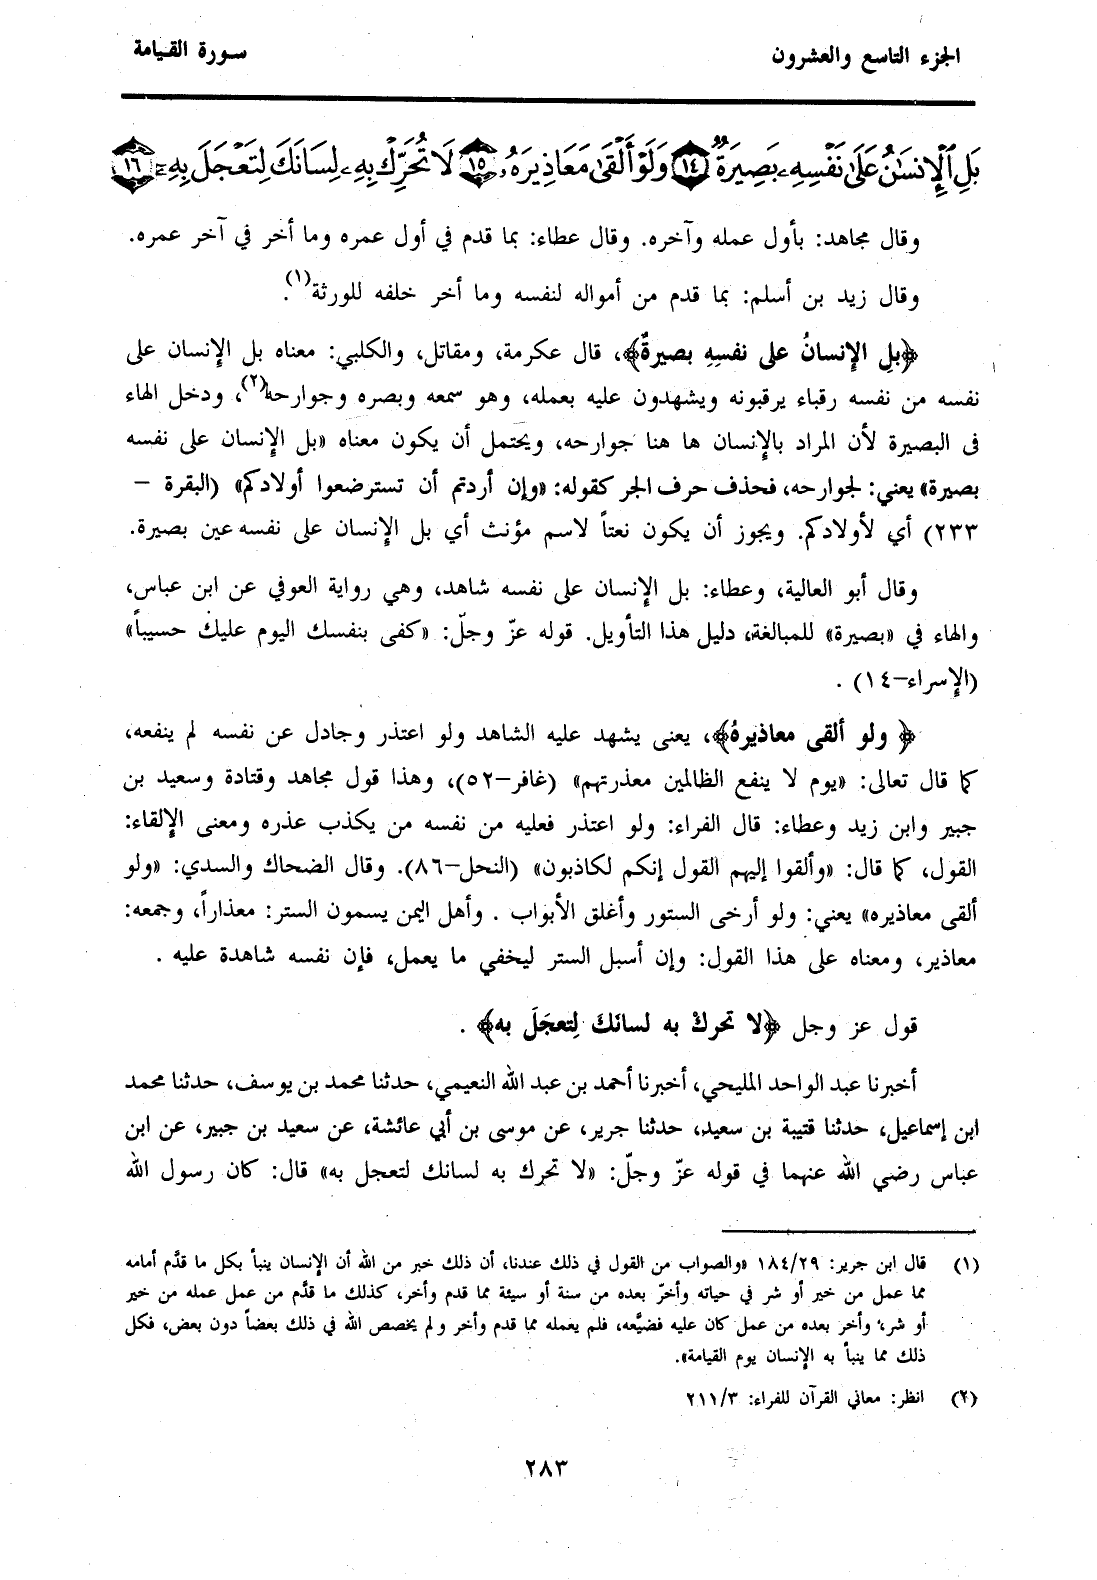 الجزء التاسع والعشرون
سورة القيامة
بَلِ ٱلْإِنسَٰنُ عَلَىٰ نَفْسِهِۦ بَصِيرَةٌ ١٤ وَلَوْ أَلْقَىٰ مَعَاذِيرَهُۥ ١٥ لَا تُحَرِّكْ بِهِۦ لِسَانَكَ لِتَعْجَلَ بِهِۦٓ ١٦
وقال مجاهد: بأول عمله وآخره. وقال عطاء: بما قدم في أول عمره وما أخر في آخر عمره.
وقال زيد بن أسلم: بما قدم من أمواله لنفسه وما أخر خلفه للورثة(١).
﴿بلِ الإنسانُ على نفسِهِ بصيرةٌ﴾، قال عكرمة، ومقاتل، والكلبي: معناه بل الإنسان على
نفسه من نفسه رقباء يرقبونه ويشهدون عليه بعمله، وهو سمعه وبصره وجوارحه(٢)، ودخل الهاء
فى البصيرة لأن المراد بالإنسان ها هنا جوارحه، ويحتمل أن يكون معناه «بل الإنسان على نفسه
بصيرة» يعني: لجوارحه، فحذف حرف الجر كقوله: «وإن أردتم أن تسترضعوا أولادكم» (البقرة –
٢٣٣) أي لأولادكم. ويجوز أن يكون نعتاً لاسم مؤنث أي بل الإنسان على نفسه عين بصيرة.
وقال أبو العالية، وعطاء: بل الإنسان على نفسه شاهد، وهي رواية العوفي عن ابن عباس،
والهاء في «بصيرة» للمبالغة، دليل هذا التأويل. قوله عزّ وجلّ: «كفى بنفسك اليوم عليك حسيباً»
(الإسراء–١٤) .
﴿ ولو ألقى معاذيرهُ﴾، يعنى يشهد عليه الشاهد ولو اعتذر وجادل عن نفسه لم ينفعه،
كما قال تعالى: «يوم لا ينفع الظالمين معذرتهم» (غافر–٥٢)، وهذا قول مجاهد وقتادة وسعيد بن
جبير وابن زيد وعطاء: قال الفراء: ولو اعتذر فعليه من نفسه من يكذب عذره ومعنى الإلقاء:
القول، كما قال: «وألقوا إليهم القول إنكم لكاذبون» (النحل–٨٦). وقال الضحاك والسدي: «ولو
ألقى معاذيره» يعني: ولو أرخى الستور وأغلق الأبواب . وأهل اليمن يسمون الستر: معذاراً، وجمعه:
معاذير، ومعناه على هذا القول: وإن أسبل الستر ليخفي ما يعمل، فإن نفسه شاهدة عليه .
قول عز وجل ﴿لا تحركْ به لسانَكَ لِتعجَلَ به﴾ .
أخبرنا عبد الواحد المليحي، أخبرنا أحمد بن عبد الله النعيمي، حدثنا محمد بن يوسف، حدثنا محمد
ابن إسماعيل، حدثنا قتيبة بن سعيد، حدثنا جرير، عن موسى بن أبي عائشة، عن سعيد بن جبير، عن ابن
عباس رضي الله عنهما في قوله عزّ وجلّ: «لا تحرك به لسانك لتعجل به» قال: كان رسول الله
(١) قال ابن جرير: ١٨٤/٢٩ «والصواب من القول في ذلك عندنا، أن ذلك خبر من الله أن الإنسان ينبأ بكل ما قدَّم أمامه
مما عمل من خير أو شر في حياته وأخرّ بعده من سنة أو سيئة مما قدم وأخر، كذلك ما قدَّم من عمل عمله من خير
أو شر، وأخر بعده من عمل كان عليه فضيَّعه، فلم يعمله مما قدم وأخر ولم يخصص الله في ذلك بعضاً دون بعض، فكل
ذلك مما ينبأ به الإنسان يوم القيامة».
(٢) انظر: معاني القرآن للفراء: ٢١١/٣
٢٨٣